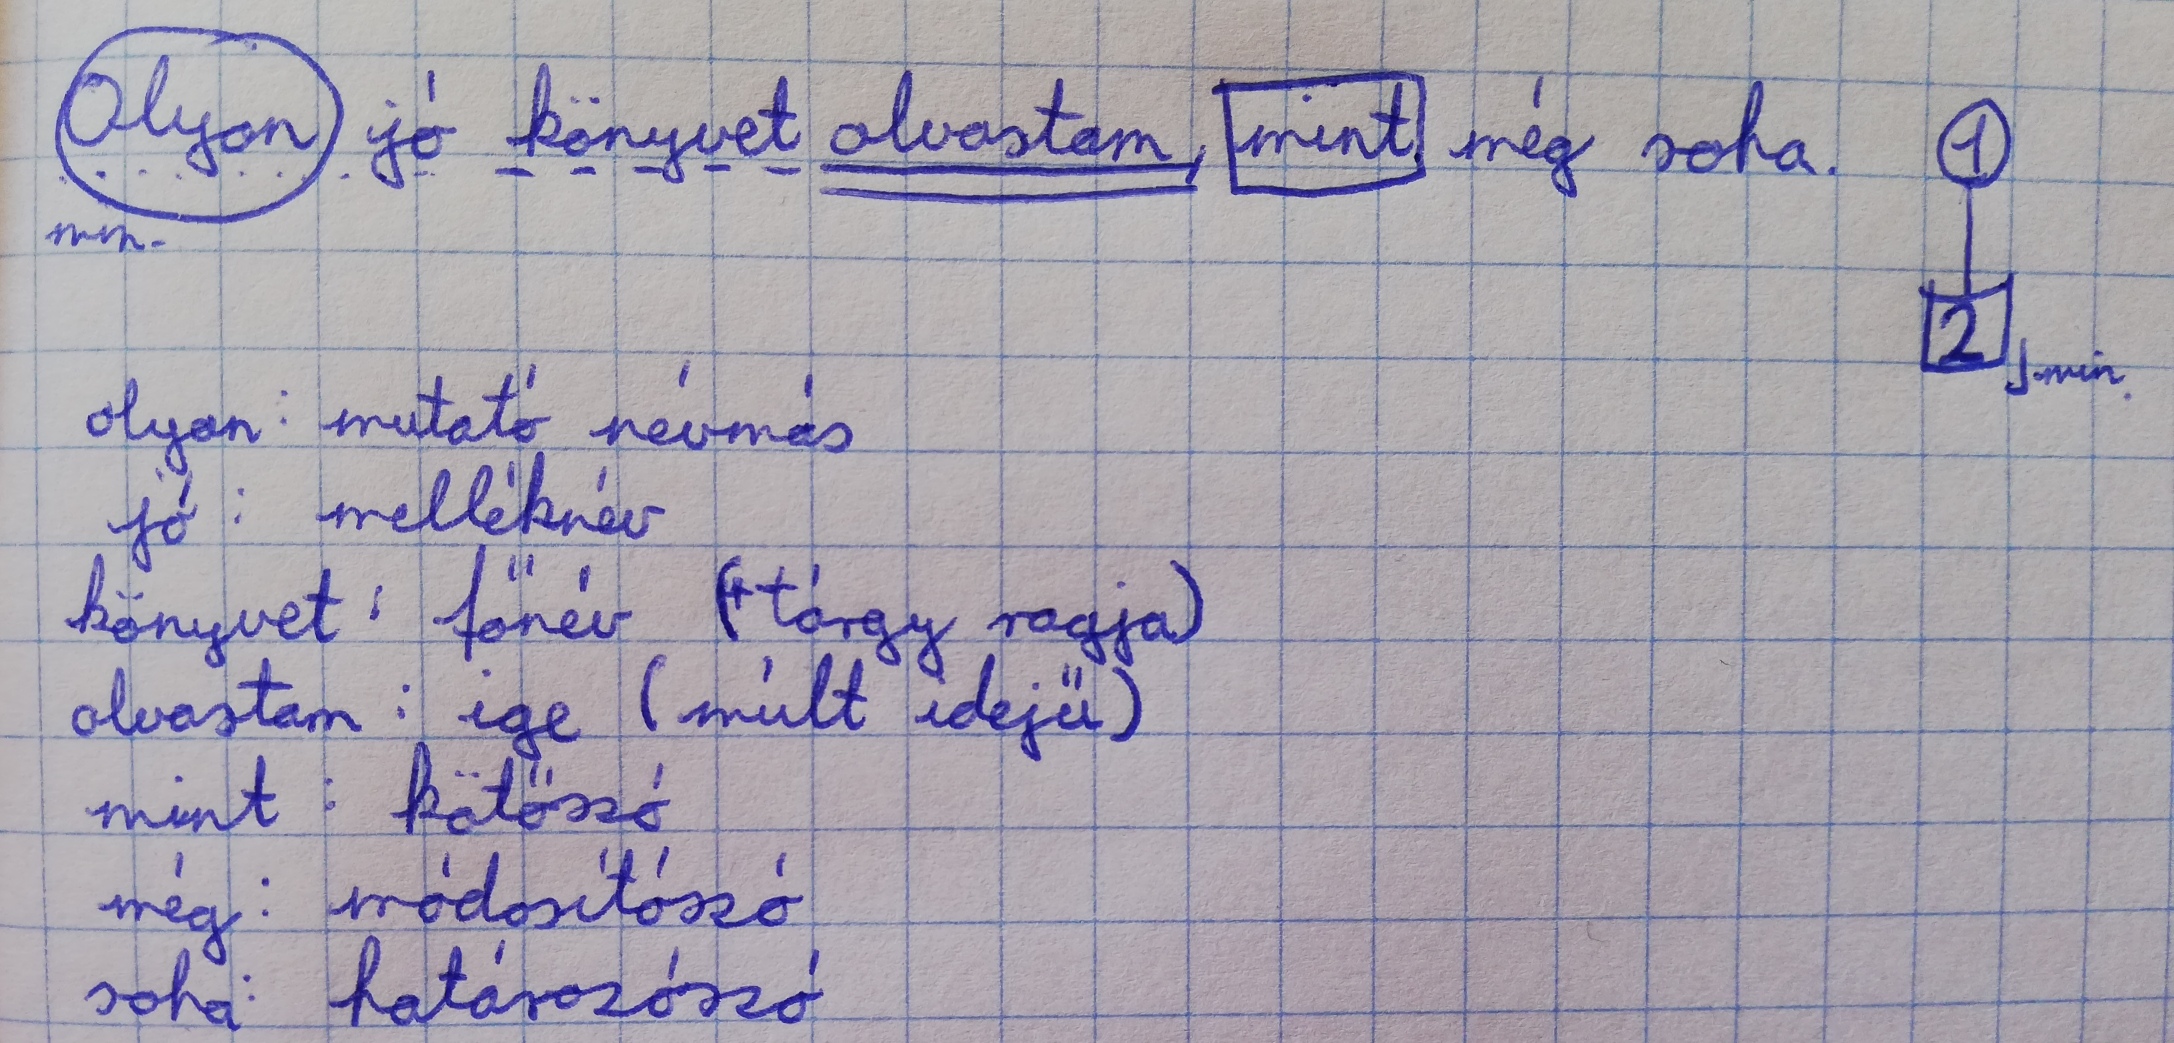 Olyan jó könyvet olvastam, mint még soha. 1
min.
2
j.min.
olyan: mutató névmás
jó: melléknév
könyvet: főnév (+tárgy ragja)
olvastam: ige (múlt idejű)
mint: kötőszó
még: módosítószó
soha: határozószó